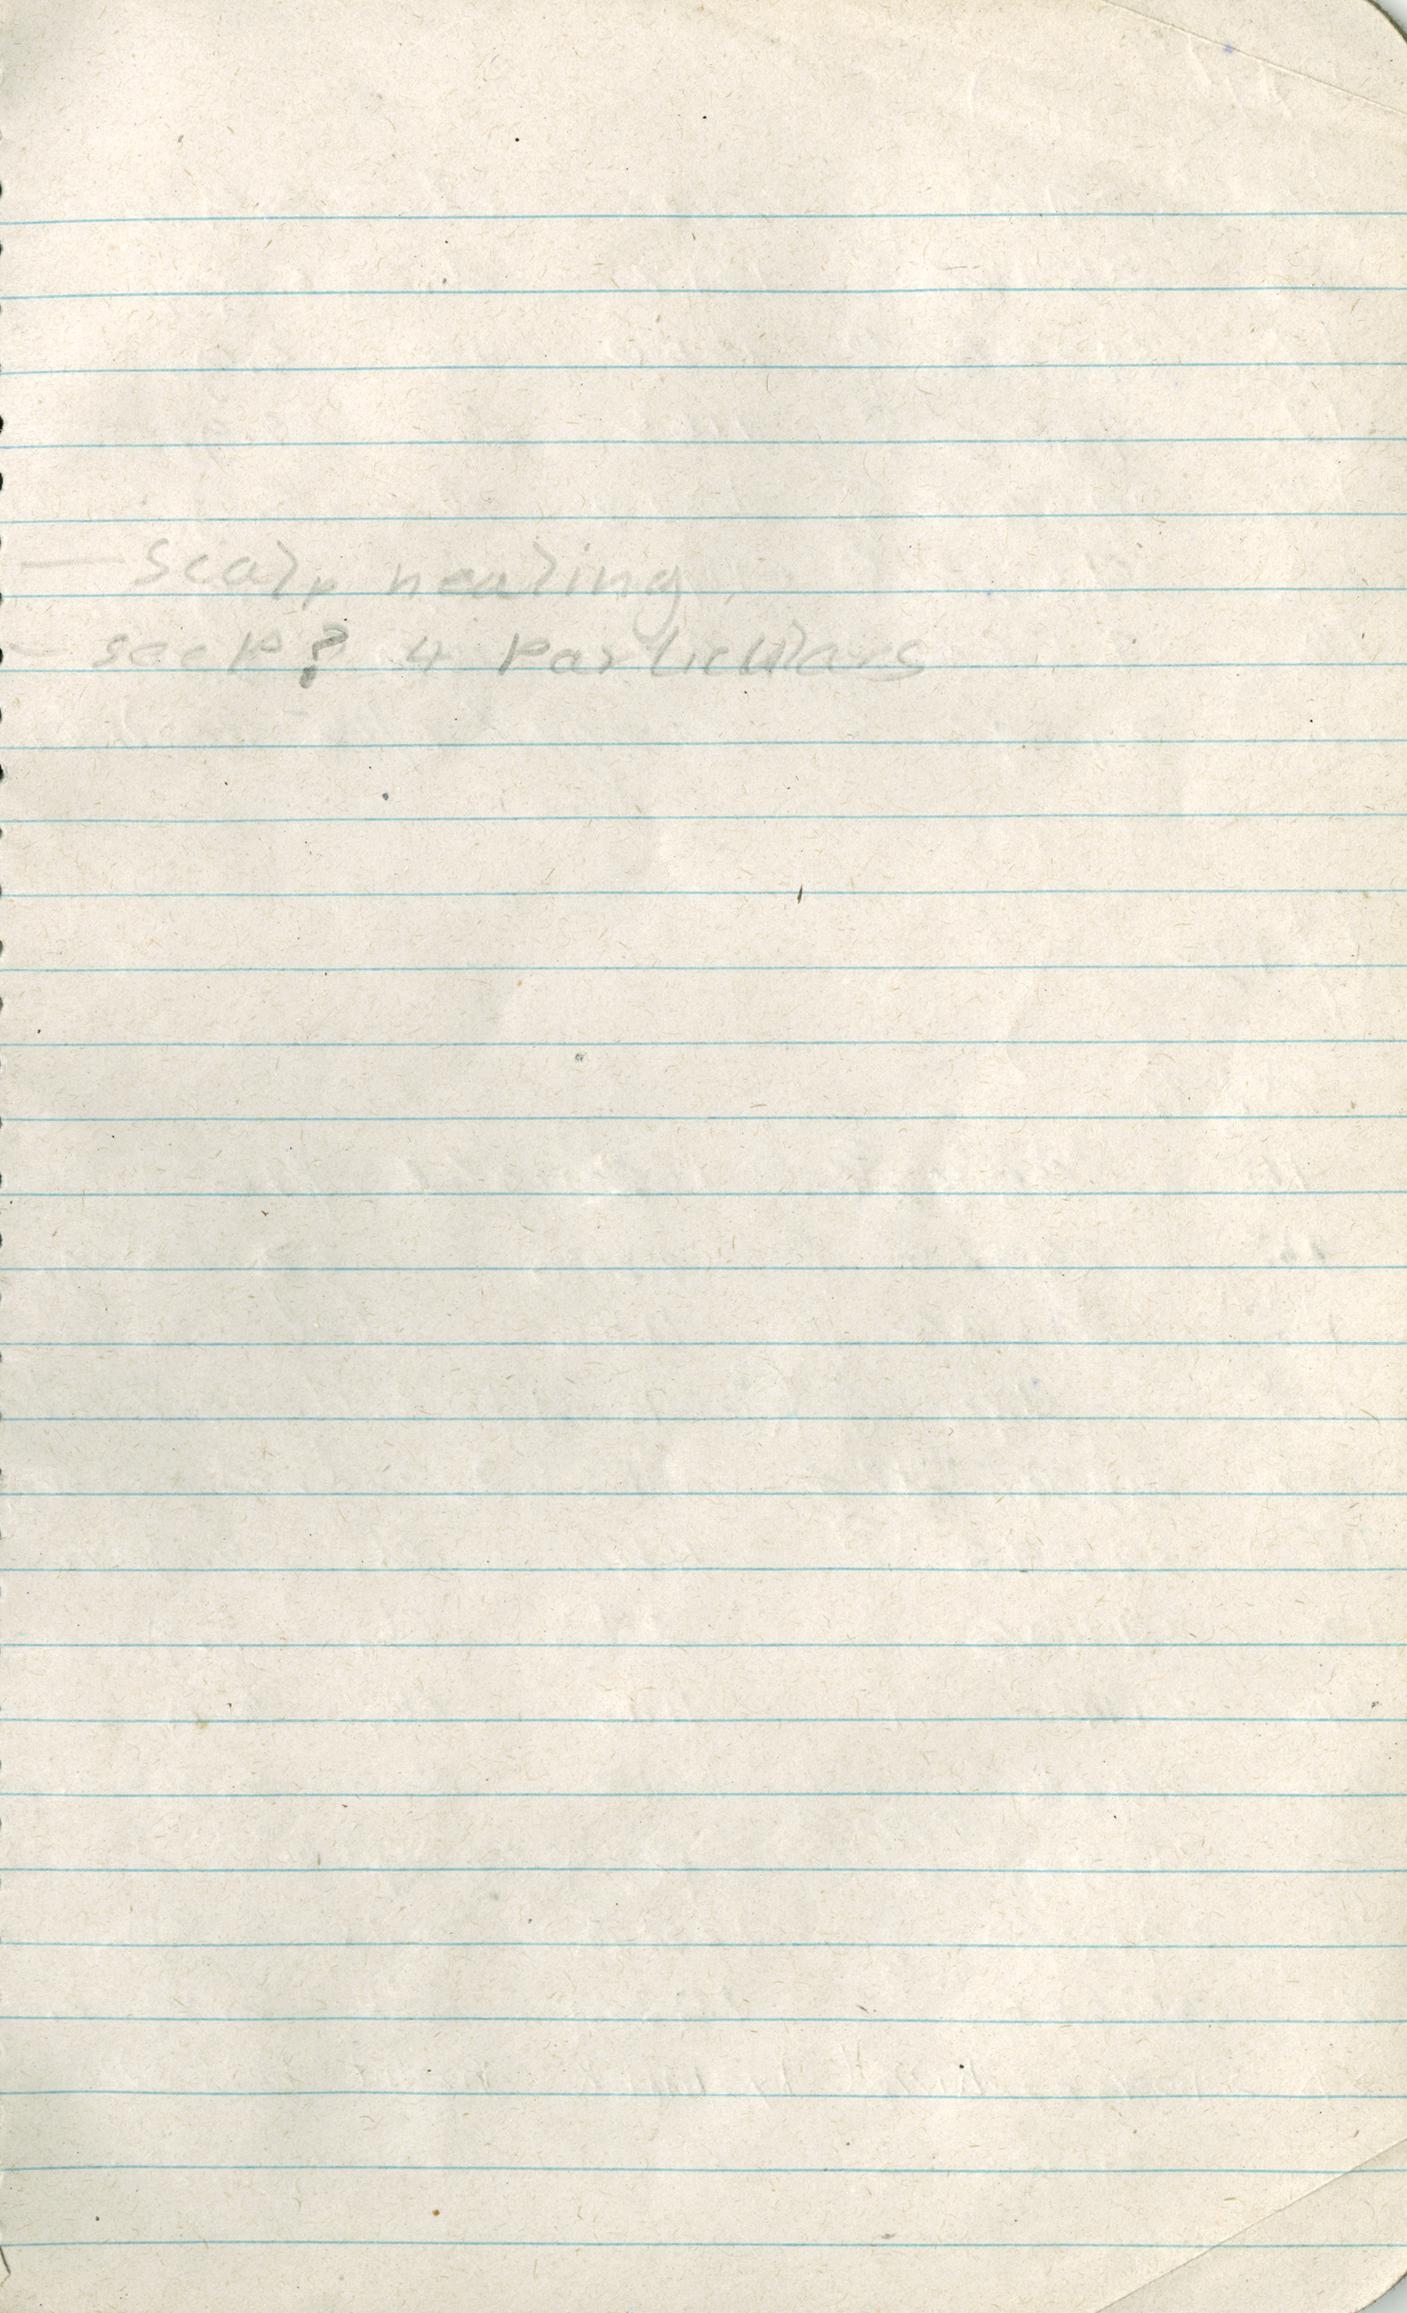 — Scalp healing.
- seek? 4 Particulars